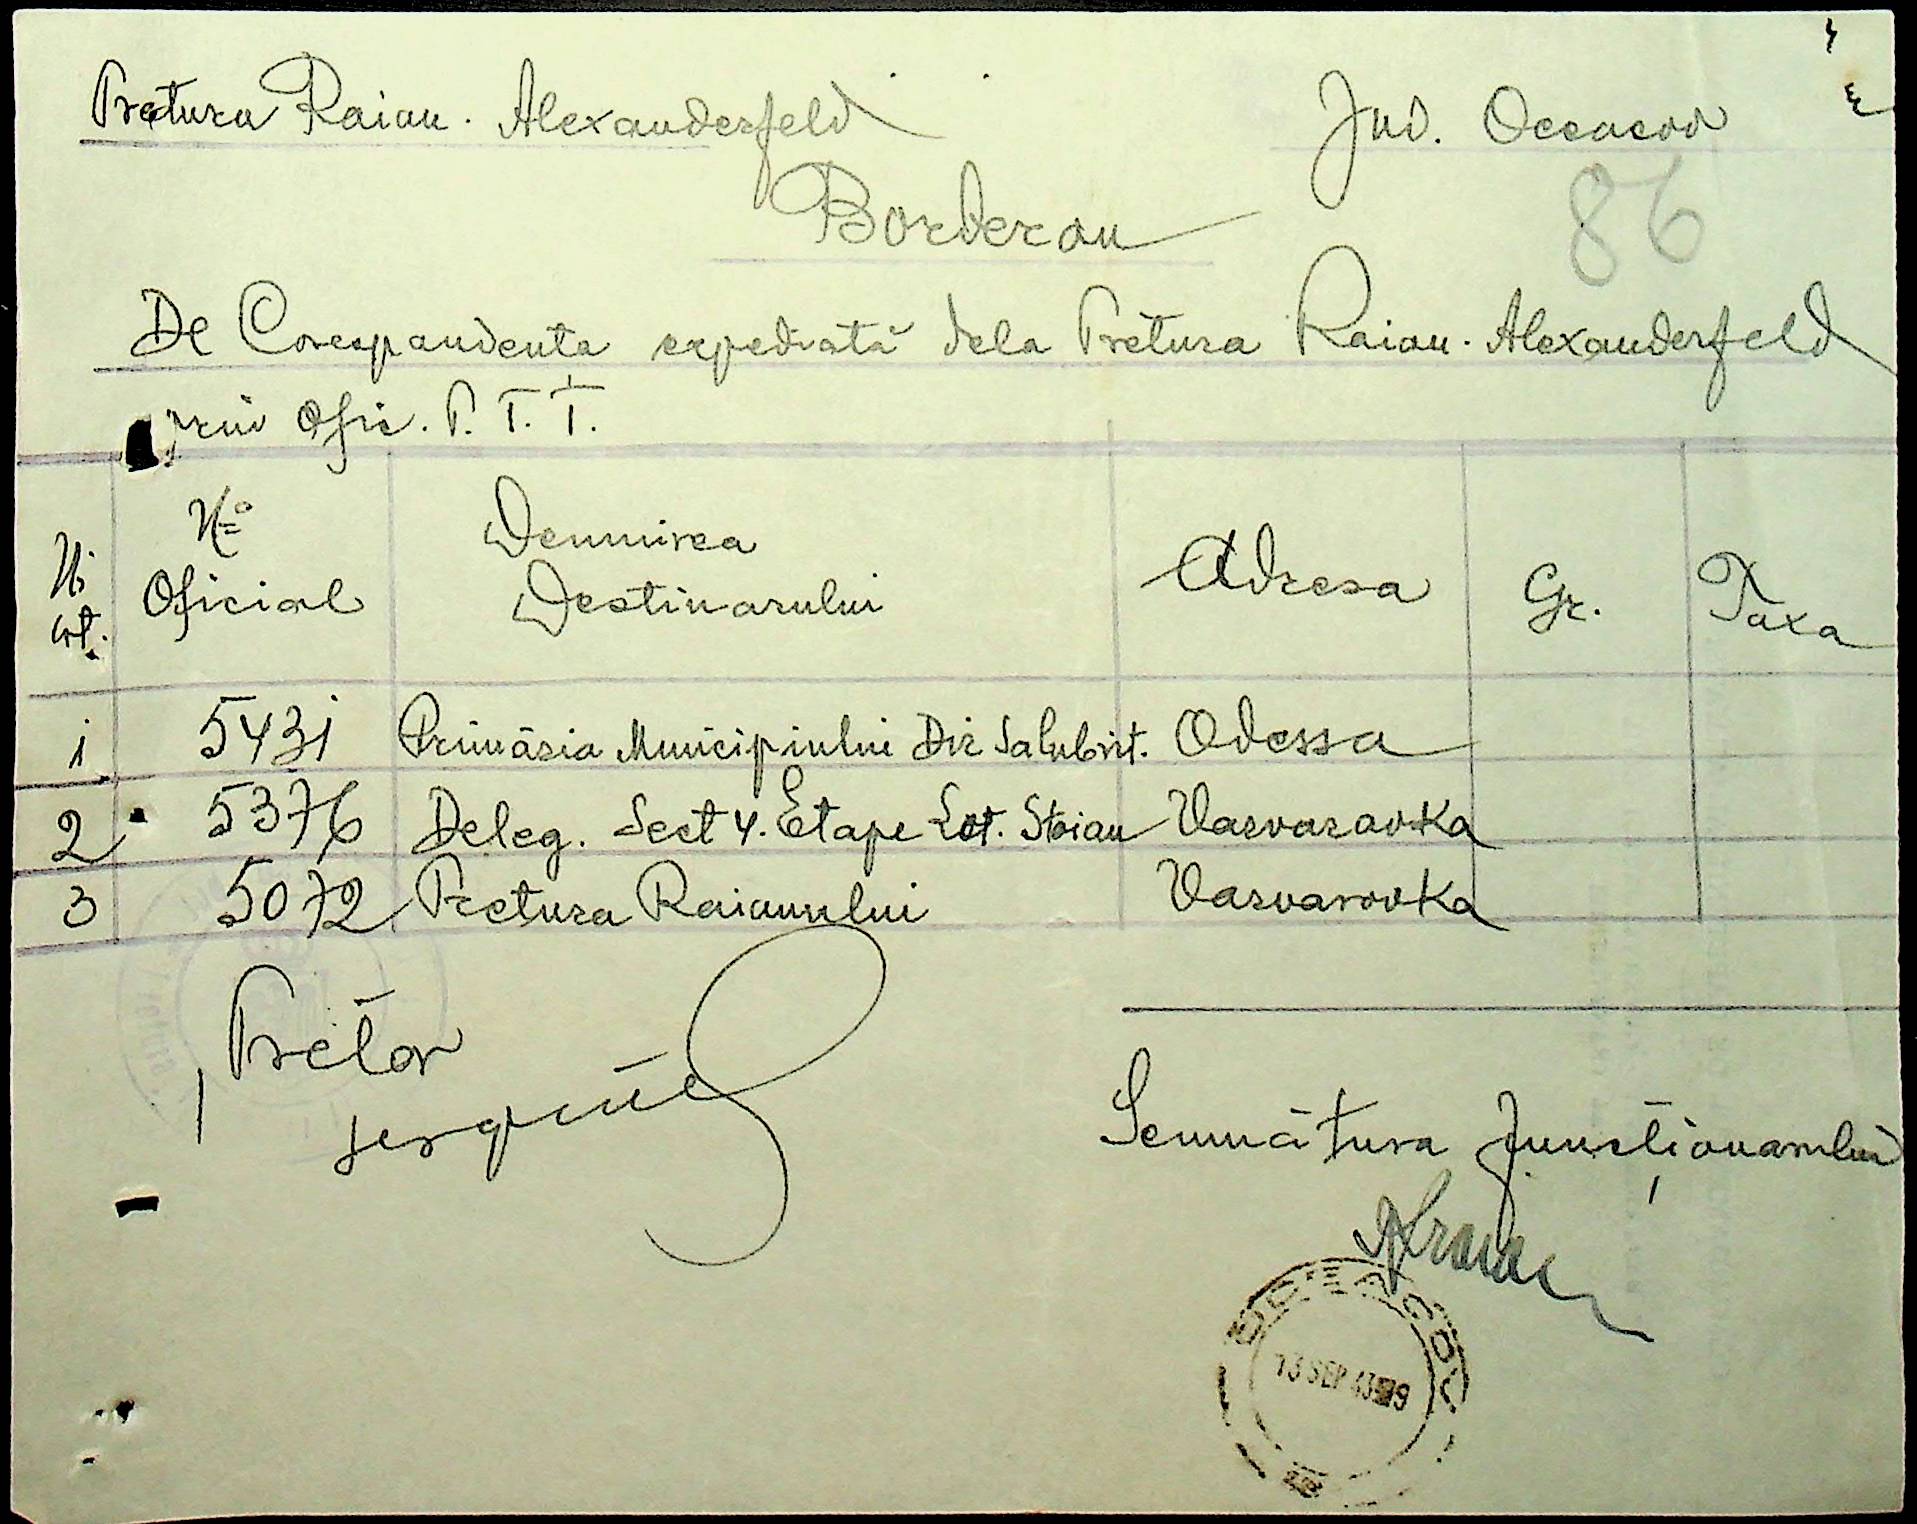 Pretura Raion. Alexanderfeld
Jud. Oceacov
86
Borderou
De Corespondenta expediată dela Pretura Raion. Alexanderfeld
prin Ofic. P. T. T.
Nr crt. No Oficial Denumirea Destinarului Adresa Gr. Taxa
1 5431 Primăria Municipiului Dir Salubrit. Odessa
2 5376 Deleg. Sect 4. Etape Lot. Stoian Varvarovka
3 5072 Pretura Raionului Varvarovka
Pretor
Semnătura funcționarului
OCEACOV
13 SEP 43